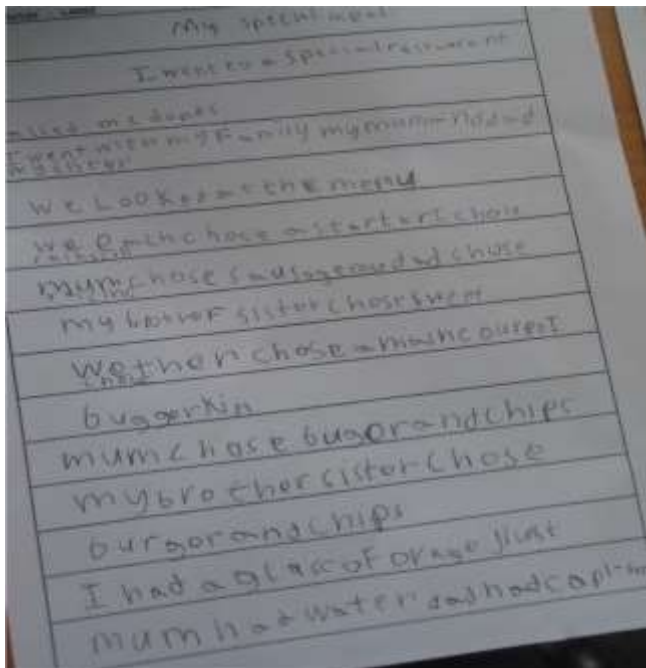 My special meal
I went to a special restaurant
called mcdones
I went with my Family my mum and dad
my sister
we Looked at the menu
we each chose a starter I chose
mum chose sausage and dad chose
my brother sister chose sweet
we then chose a maine courest I
chose
buggerkin
mum chose bugor and chips
my brother sister chose
burgor and chips
I had a glass of orage jiust
mum had water dad had